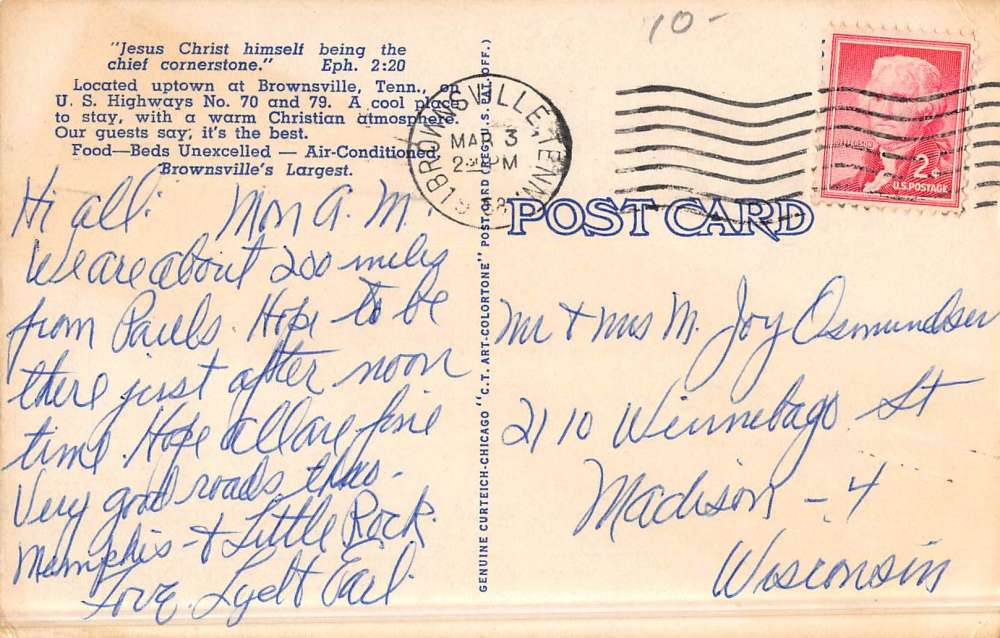 10-
"Jesus Christ himself being the
chief cornerstone." Eph. 2:20
Located uptown at Brownsville, Tenn., on
U. S. Highways No. 70 and 79. A cool place
to stay, with a warm Christian atmosphere.
Our guests say, it's the best.
Food—Beds Unexcelled — Air-Conditioned
Brownsville's Largest.
BROWNSVILLE, TENN.
MAR 3
PM
2¢
U.S. POSTAGE
POST CARD
GENUINE CURTEICH-CHICAGO "C.T. ART-COLORTONE" POST CARD (REG. U.S. PAT. OFF.)
Hi all: Mon A.M.
We are about 200 miles
from Pauls. Hope to be
there just after noon
time. Hope all are fine
Very good roads thru-
Memphis - & Little Rock.
Love. Earl.
Mr & Mrs M. Joy Osmundsen
2110 Winnebago St
Madison - 4
Wisconsin